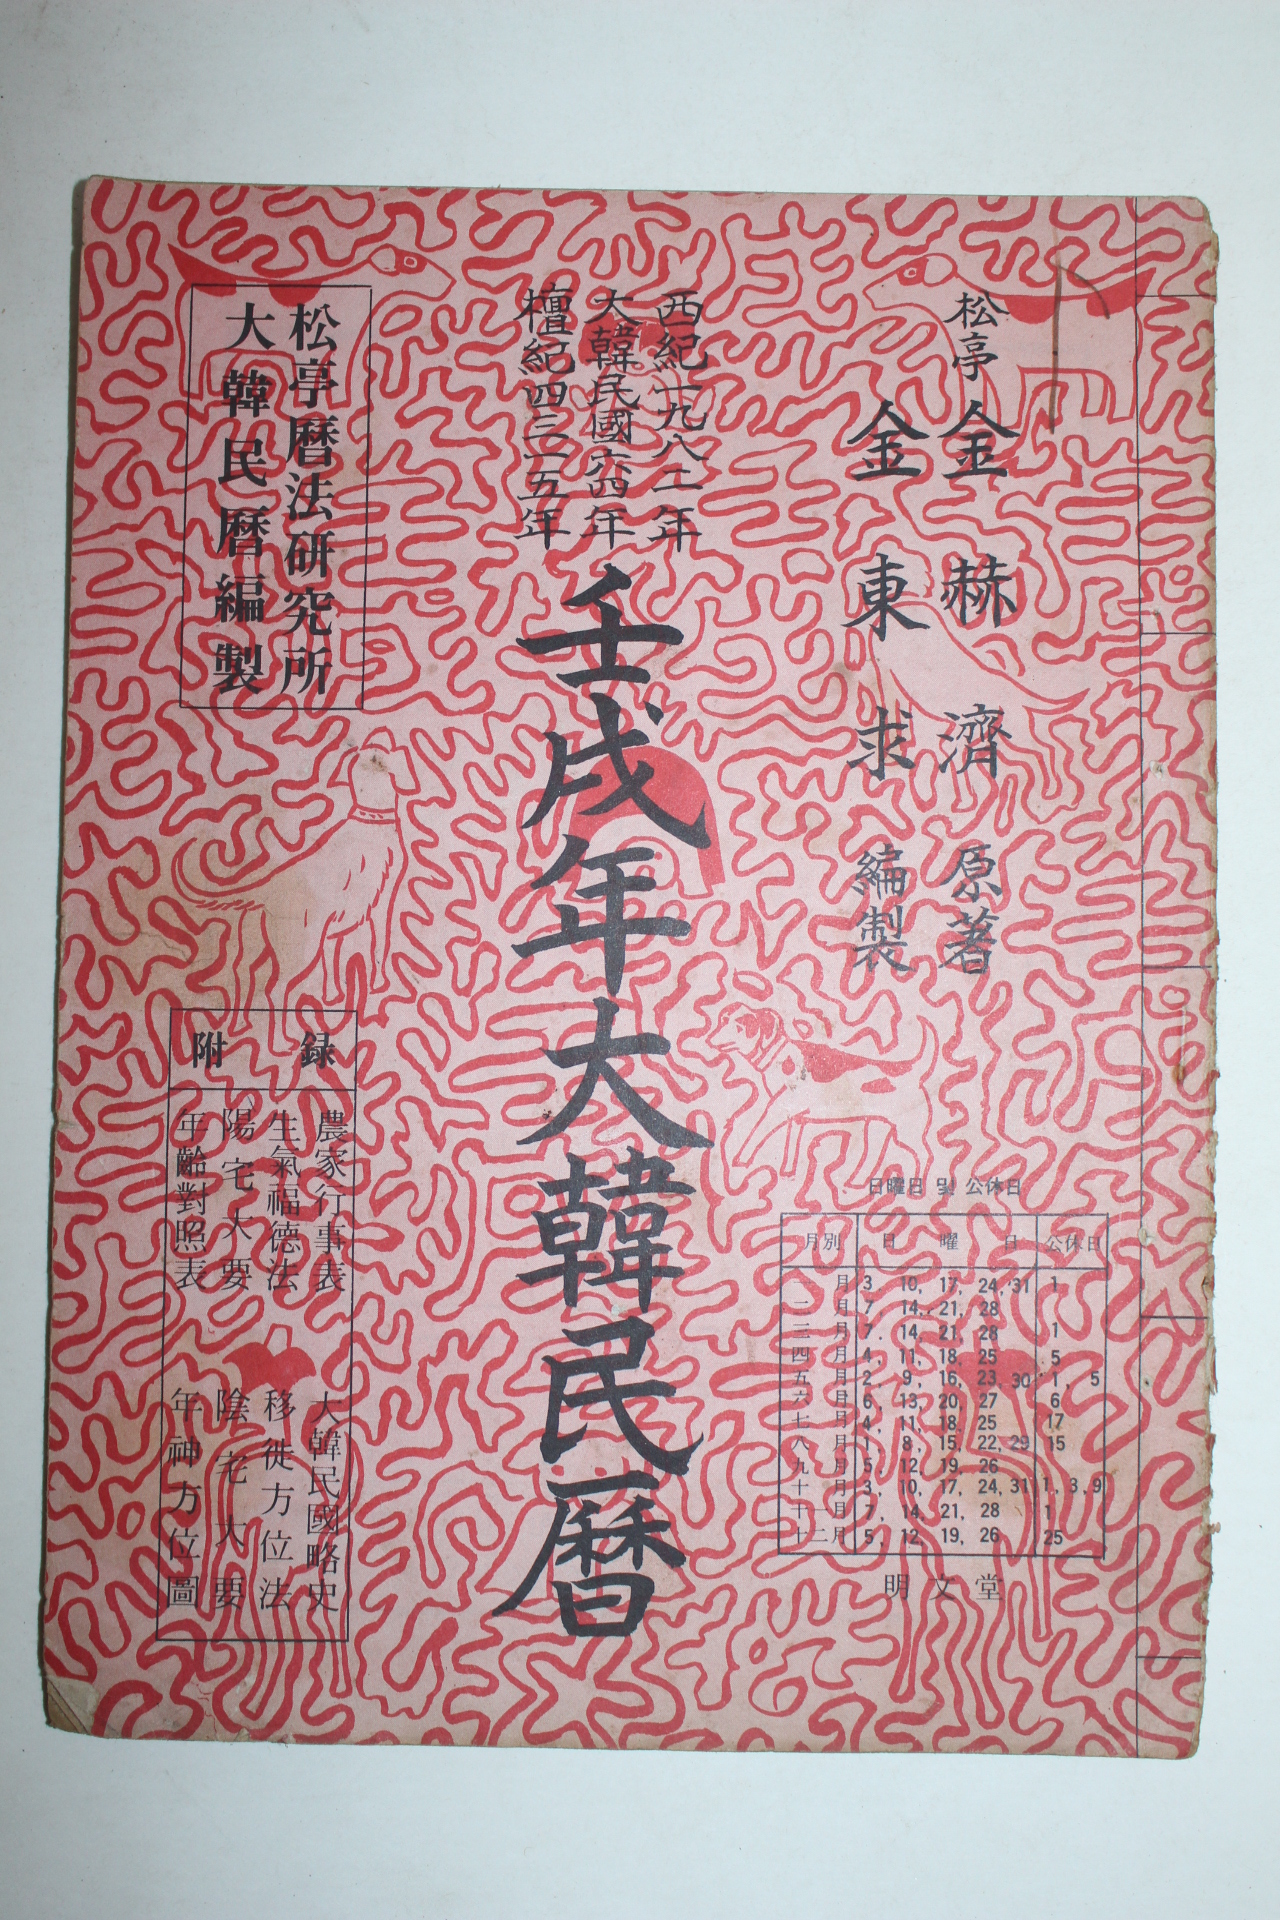 松亭 金赫濟 原著
金東求 編製
西紀一九八二年
大韓民國六四年
檀紀四三一五年
壬戌年大韓民曆
松亭曆法硏究所
大韓民曆編製
附錄
農家行事表 大韓民國略史
生氣福德法 移徙方位法
陽宅大要 陰宅大要
年齡對照表 年神方位圖
日曜日 및 公休日
月別 日曜日 公休日
一月 3, 10, 17, 24, 31 1
二月 7, 14, 21, 28
三月 7, 14, 21, 28 1
四月 4, 11, 18, 25 5
五月 2, 9, 16, 23, 30 1, 5
六月 6, 13, 20, 27 6
七月 4, 11, 18, 25 17
八月 1, 8, 15, 22, 29 15
九月 5, 12, 19, 26
十月 3, 10, 17, 24, 31 1, 3, 9
十一月 7, 14, 21, 28 1
十二月 5, 12, 19, 26 25
明文堂